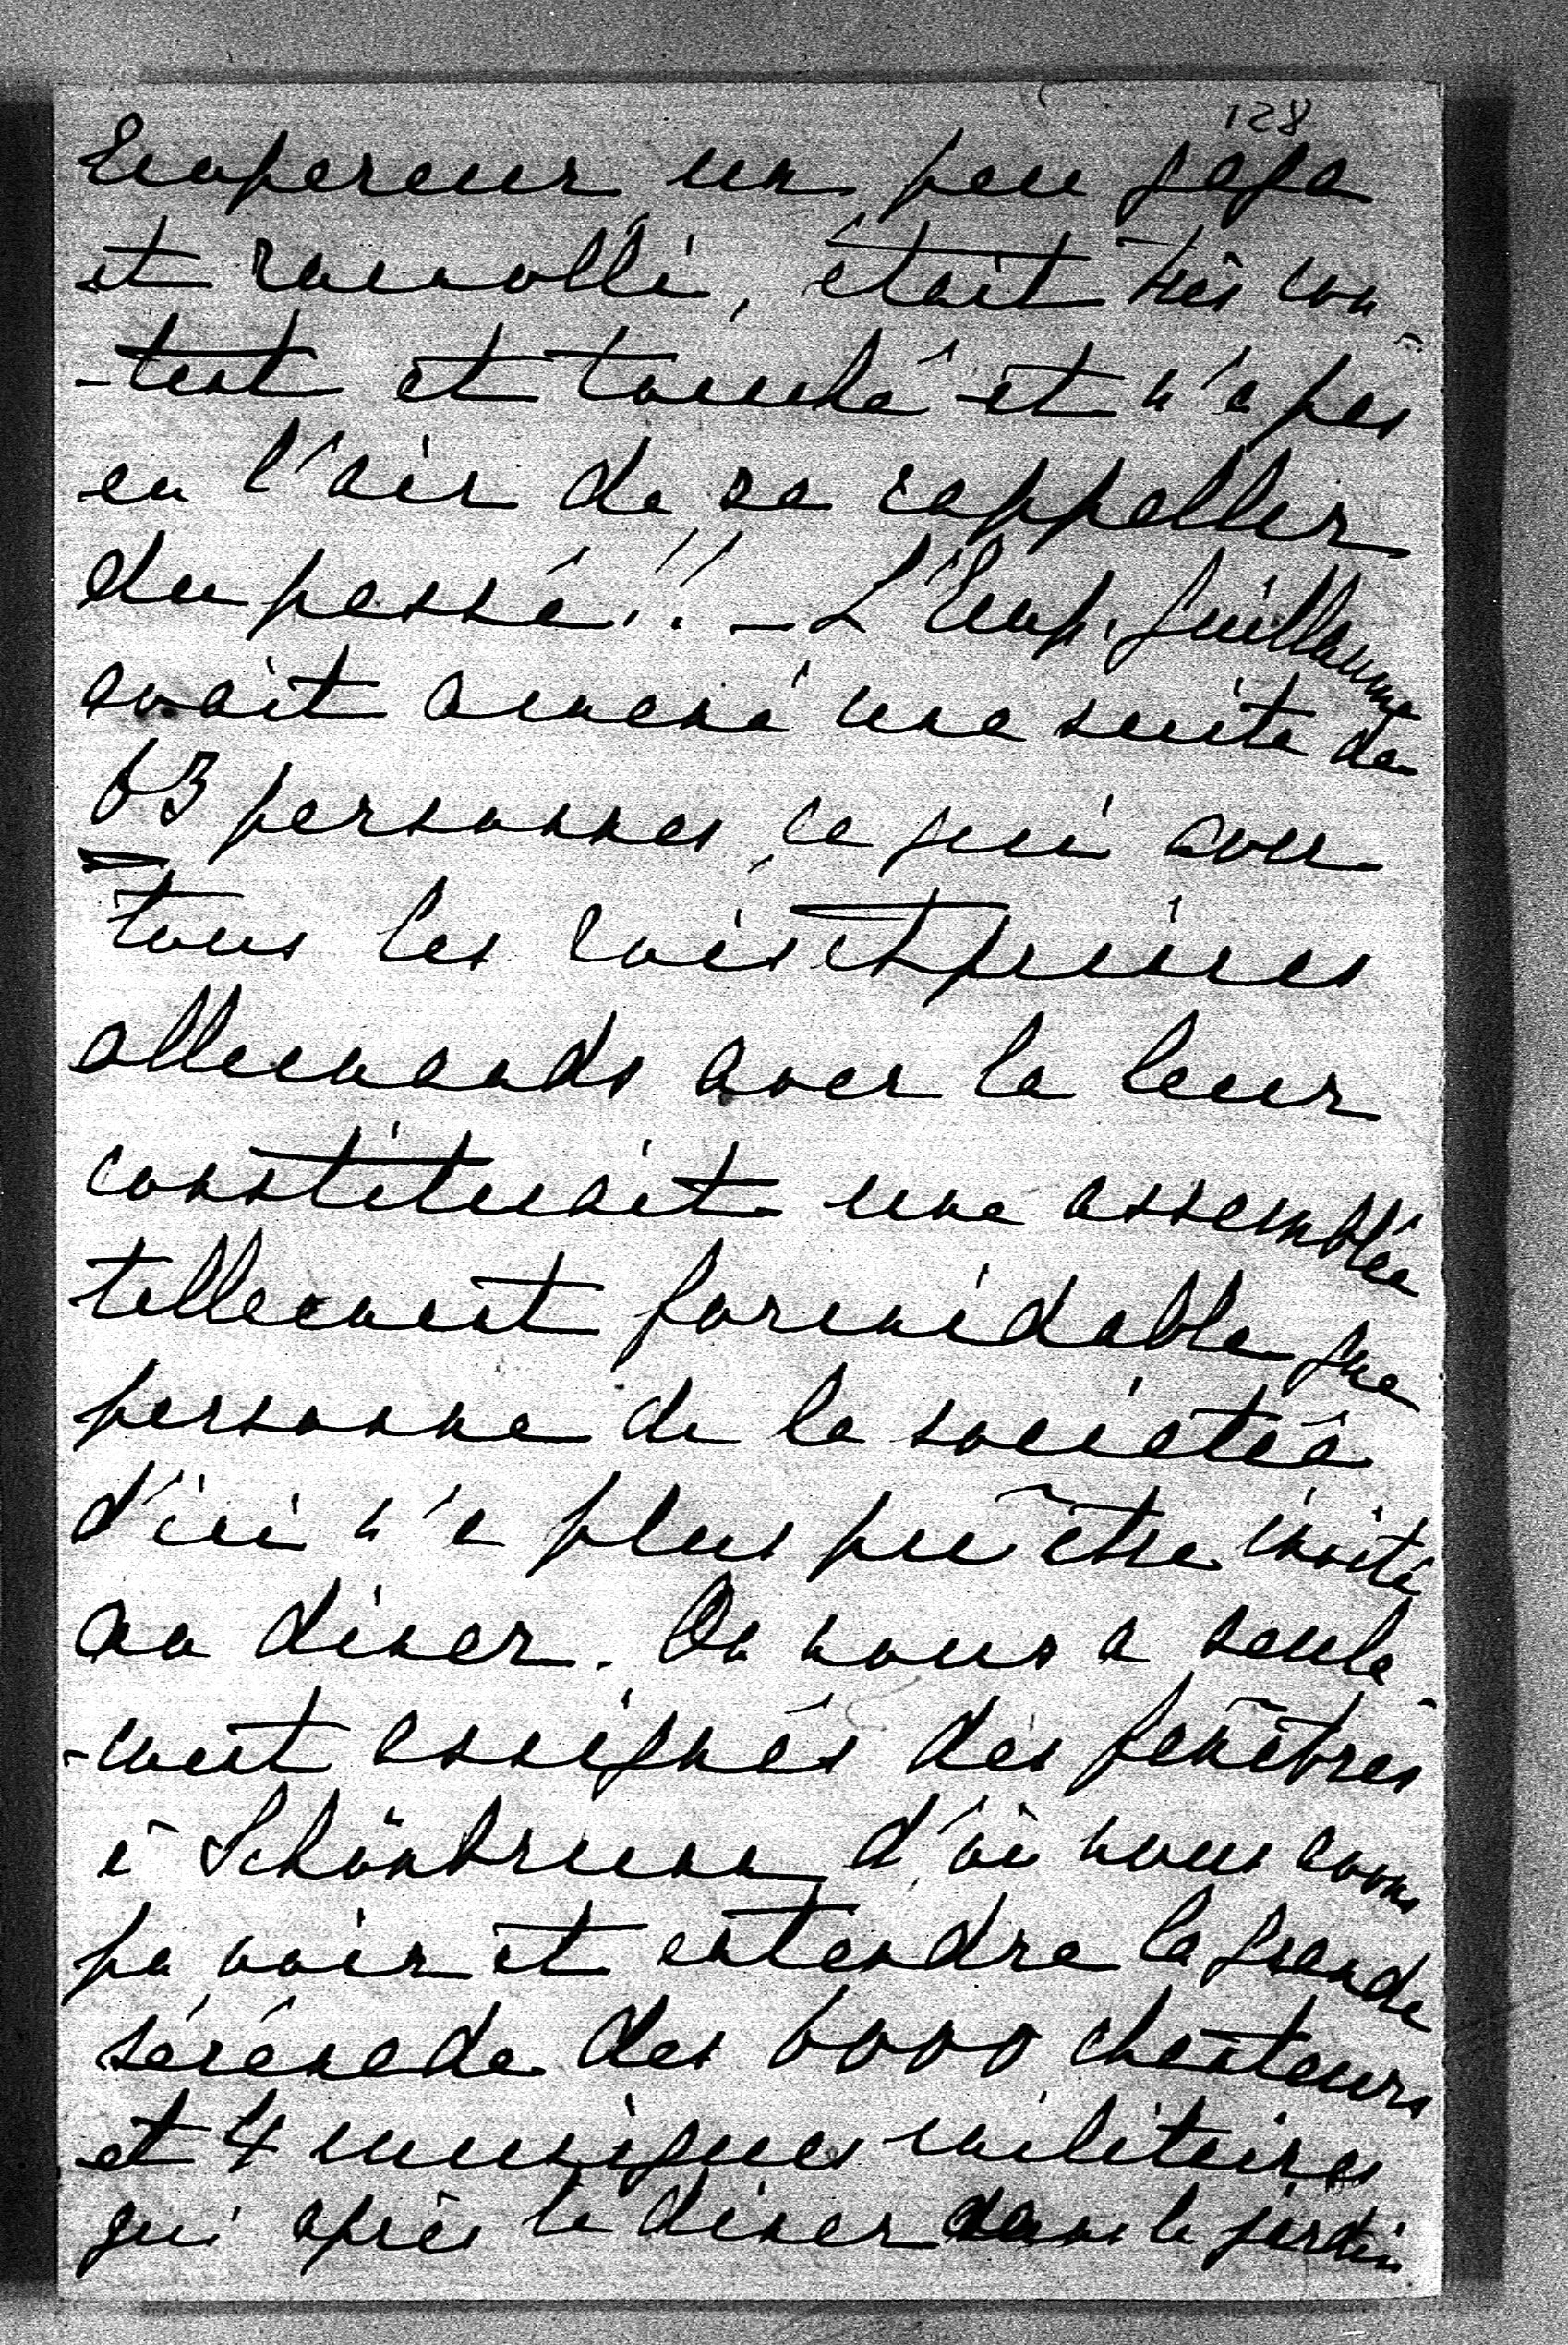 128
Empereur un peu gaga
et ramolli, était très con-
-tent et touché et n'a pas
eu l'air de se rappeller
du passé!! – L'Emp. Guillaume
avait amené une suite de
63 personnes, ce qui avec
tous les rois et princes
allemands avec la leur
constituait une assemblée
tellement formidable que
personne de la société
d'ici n'a plus pu être invité
au diner. On nous a seule-
-ment assignés des fenêtres
à Schönbrunn d'où nous avons
pu voir et entendre la grande
sérénade des 6000 chanteurs
et 4 musiques militaires
qui après le diner dans le jardin